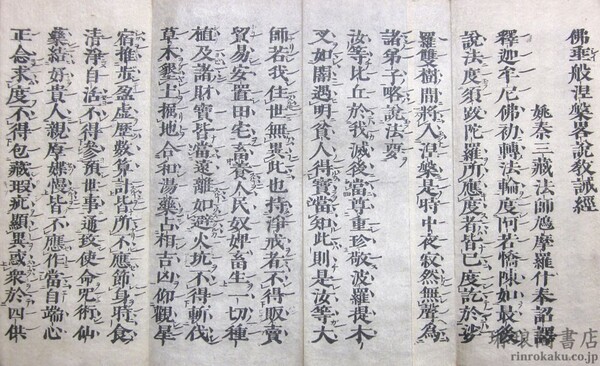 佛垂般涅槃畧說教誡經
姚秦三藏法師鳩摩羅什奉詔譯
釋迦牟尼佛初轉法輪度阿若憍陳如最後
說法度須跋陀羅所應度者皆已度訖於娑
羅雙樹間將入涅槃是時中夜寂然無聲爲
諸弟子略說法要
汝等比丘於我滅後當尊重珍敬波羅提木
叉如闇遇明貧人得寶當知此則是汝等大
師若我住世無異此也持淨戒者不得販賣
貿易安置田宅畜養人民奴婢畜生一切種
植及諸財寶皆當遠離如避火坑不得斬伐
草木墾土掘地合和湯藥占相吉凶仰觀星
宿推步盈虛歷數算計皆所不應節身時食
清淨自活不得參預世事通致使命呪術仙
藥結好貴人親厚媟慢皆不應作當自端心
正念求度不得包藏瑕疵顯異惑衆於四供
琳琅閣書店
rinrokaku.co.jp